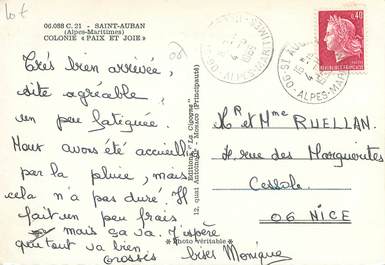 lot
06.088 C. 21 - SAINT-AUBAN
(Alpes-Maritimes)
COLONIE « PAIX ET JOIE »
06
Très bien arrivée,
site agréable,
un peu fatiguée.
Nout avons été accueillies
par la pluie, mais
cela n'a pas duré. Il
fait un peu frais
mais ça va. J'espère
que tout va bien
Grosses bises Monique
* Photo véritable *
Editions "La Cigogne"
12, quai Antoine - Monaco (Principauté)
ALPES-MARITIMES
ST AUBAN
06-ALPES-MAR
0,40
REPUBLIQUE FRANCAISE
Mr et Mme RUELLAN.
rue des Marguerites
Cessole
06 NICE